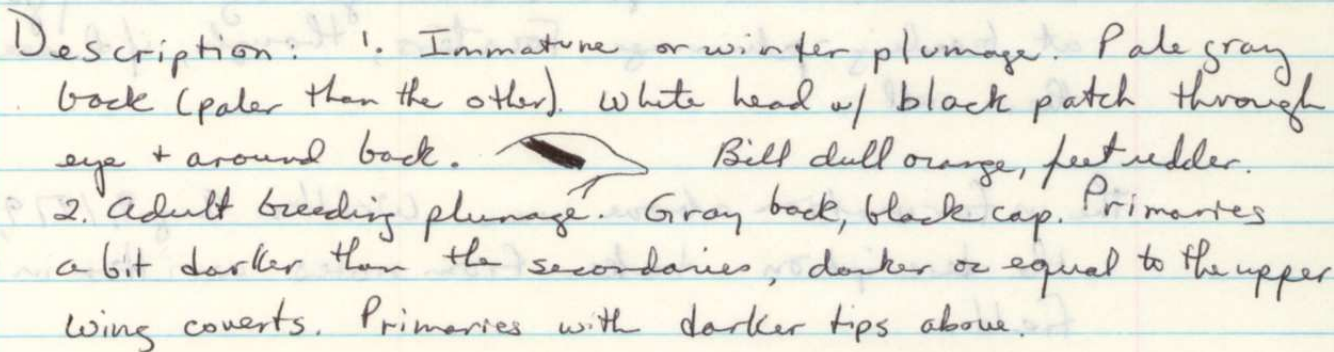 Description: 1. Immature or winter plumage. Pale gray
back (paler than the other). White head w/ black patch through
eye + around back. Bill dull orange, feet redder.
2. Adult breeding plumage. Gray back, black cap. Primaries
a bit darker than the secondaries, darker or equal to the upper
wing coverts. Primaries with darker tips above.